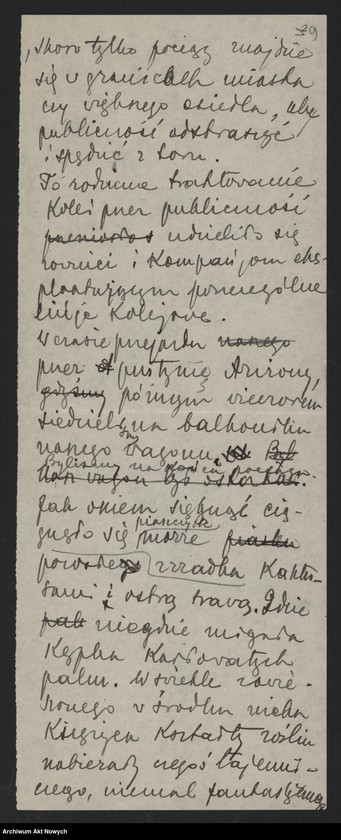 39
skoro tylko pociąg znajdzie
się w granicach miasta
czy większego osiedla, aby
publiczność odstraszyć
i spędzić z toru.
To rodzinne traktowanie
Kolei przez publiczność
przeniosło udzieliło się
również i Kompanjom eks-
ploatującym poszczególne
linje Kolejowe.
W czasie przejazdu naszego
przez pustynię Arizony,
gdyśmy późnym wieczorem
siedzieliśmy na balkoniku
naszego wagonu,
Byliśmy na końcu pociągu.
Jak okiem sięgnąć cią-
piaszczyste
gnęło się morze piasku
porosłego zrzadka Kaktu-
sami i ostrą trawą. Gdzie
niegdzie migała
Kępka Karłowatych
palm. W świetle zawie-
szonego w środku nieba
Księżyca Kształty roślin
nabierały czegoś tajemni-
czego, niemal fantastyczneg
Archiwum Akt Nowych